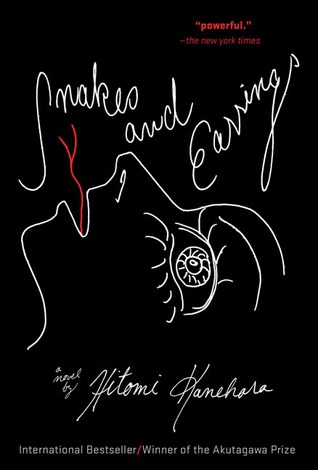 “powerful.”
—the new york times
Snakes
and
Earrings
a
novel
by
Hitomi Kanehara
International Bestseller/Winner of the Akutagawa Prize